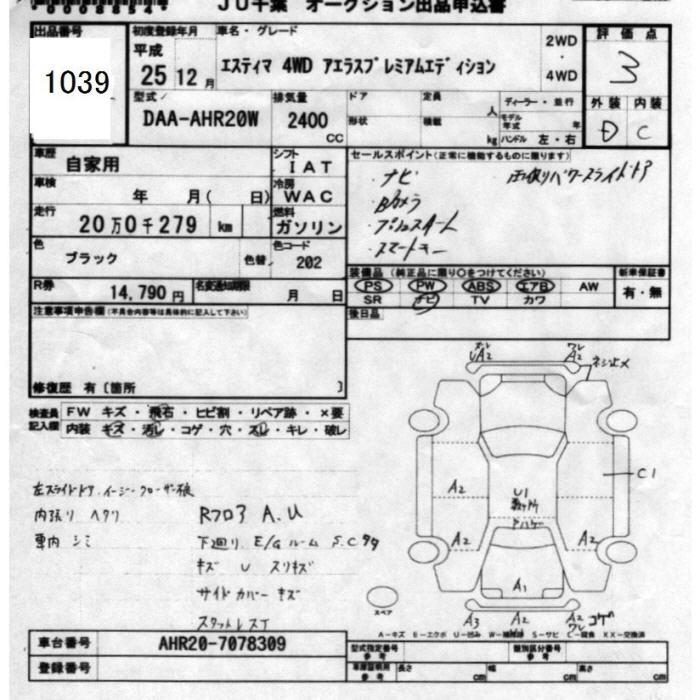 JU千葉 オークション出品申込書
出品番号
1039
初度登録年月
平成
25 12 月
車名・グレード
エスティマ 4WD アエラスプレミアムエディション
2WD
・
4WD
評価点
3
外装 内装
D C
型式
DAA-AHR20W
排気量
2400
CC
ドア
形状
定員
人
積載
kg
ディーラー・並行
モデル年式 年
ハンドル 左・右
車歴
自家用
シフト
IAT
車検
年 月( 日)
冷房
WAC
走行
20万0千279 km
燃料
ガソリン
色
ブラック
色替
色コード
202
R券
14,790円
名変通知期限
月 日
セールスポイント(正常に機能するものに限ります)
・ナビ
・Bカメラ
・プッシュスタート
・スマートキー
両側パワースライドドア
装備品 (純正品に限り○をつけてください)
PS PW ABS エアB AW
SR ナビ TV カワ
新車保証書
有・無
後日品
注意事項申告欄(不具合内容等は具体的に記入して下さい)
修復歴 有〔箇所 〕
検査員記入欄
FW キズ・飛石・ヒビ割・リペア跡・×要
内装・キズ・汚レ・コゲ・穴・スレ・キレ・破レ
左スライドドア.イージークローザー不良
内張り ヘタリ
車内 シミ
Rフロア A.U
下廻り E/Gルーム S.Cサビ
キズ U スリキズ
サイドカバー キズ
スタッドレスT
UA2
A2
ワレ
ネジ止メ
C1
A2
U1
A2
A2
A1
A3 A2 A2 コゲ
ワレ
スペア
A-キズ E-エクボ U-凹み W-補修跡 S-サビ C-腐食 XX-交換済
車台番号
AHR20-7078309
登録番号
型式指定番号
参考
類別区分番号
参考
車庫証明用
参考
長さ cm
幅 cm
高さ cm